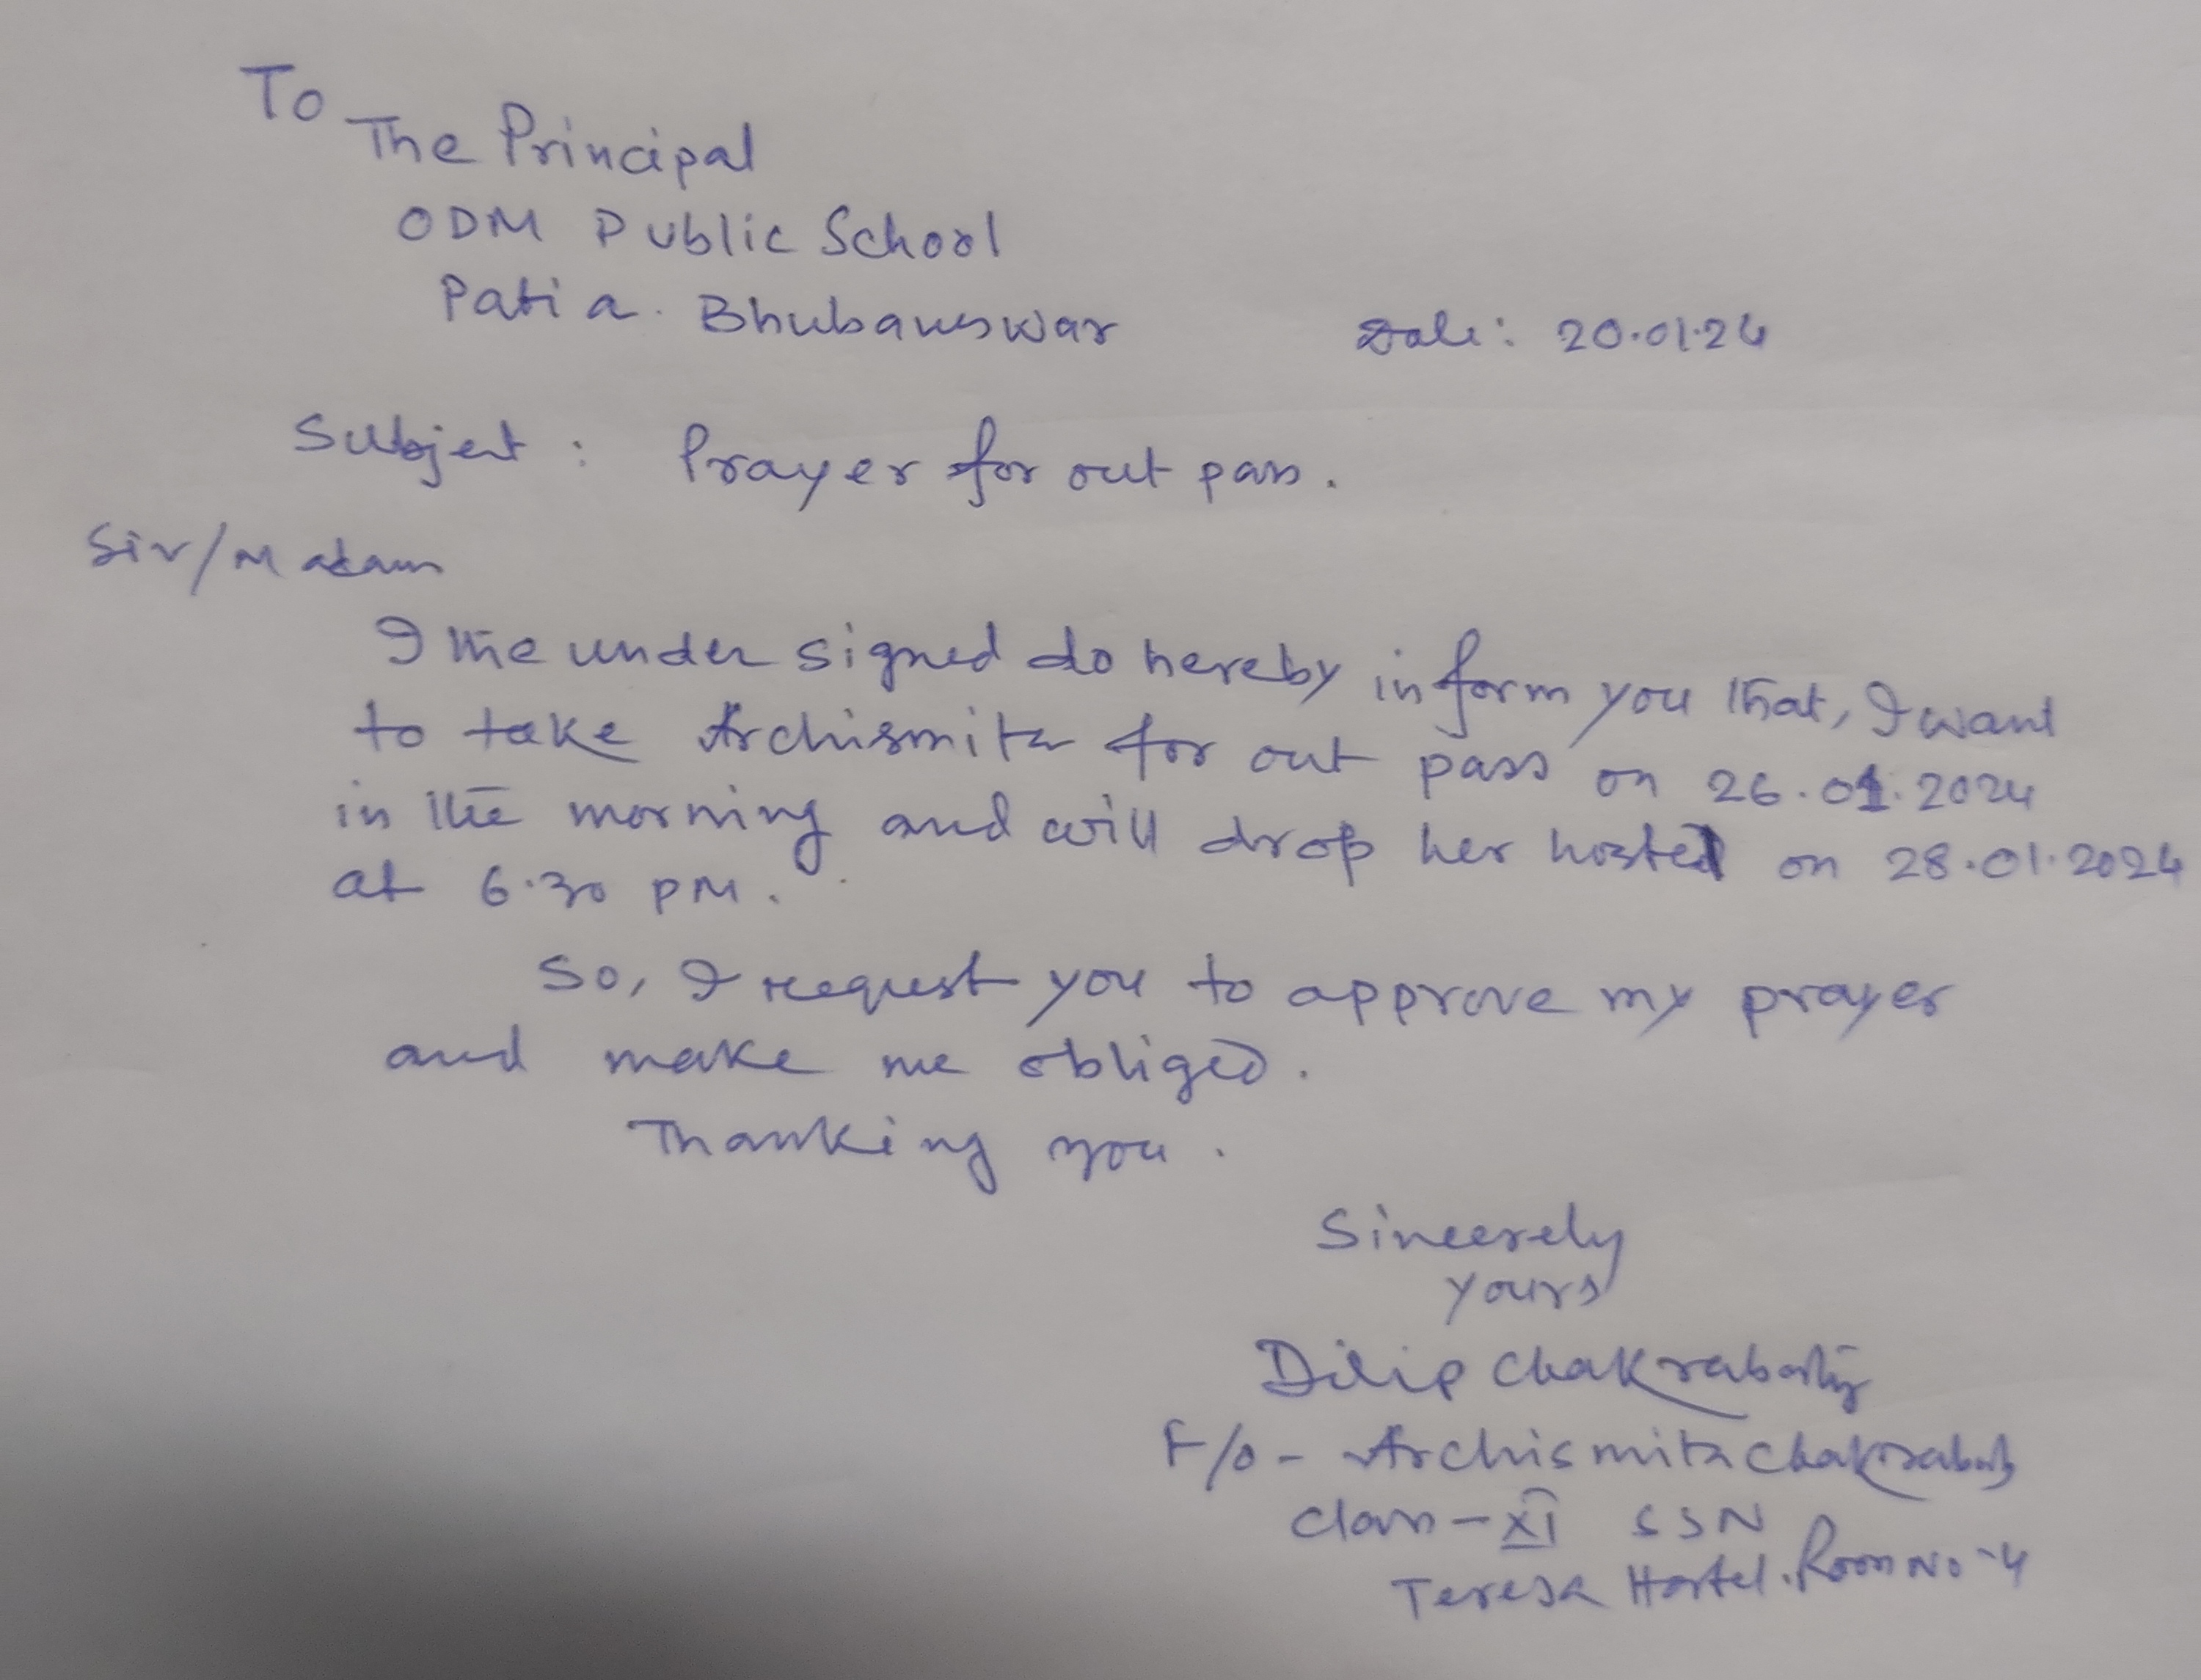 To
The Principal
ODM Public School
Patia. Bhubaneswar
Date: 20.01.24
Subject : Prayer for out pass.
Sir/Madam
I the under signed do hereby inform you that, I want
to take Archismita for out pass on 26.01.2024
in the morning and will drop her hostel on 28.01.2024
at 6.30 PM.
So, I request you to approve my prayer
and make me obliged.
Thanking you.
Sincerely
yours
Dilip Chakraborty
F/o - Archismita Chakraborty
Class - XI SSN
Teresa Hostel. Room No - 4